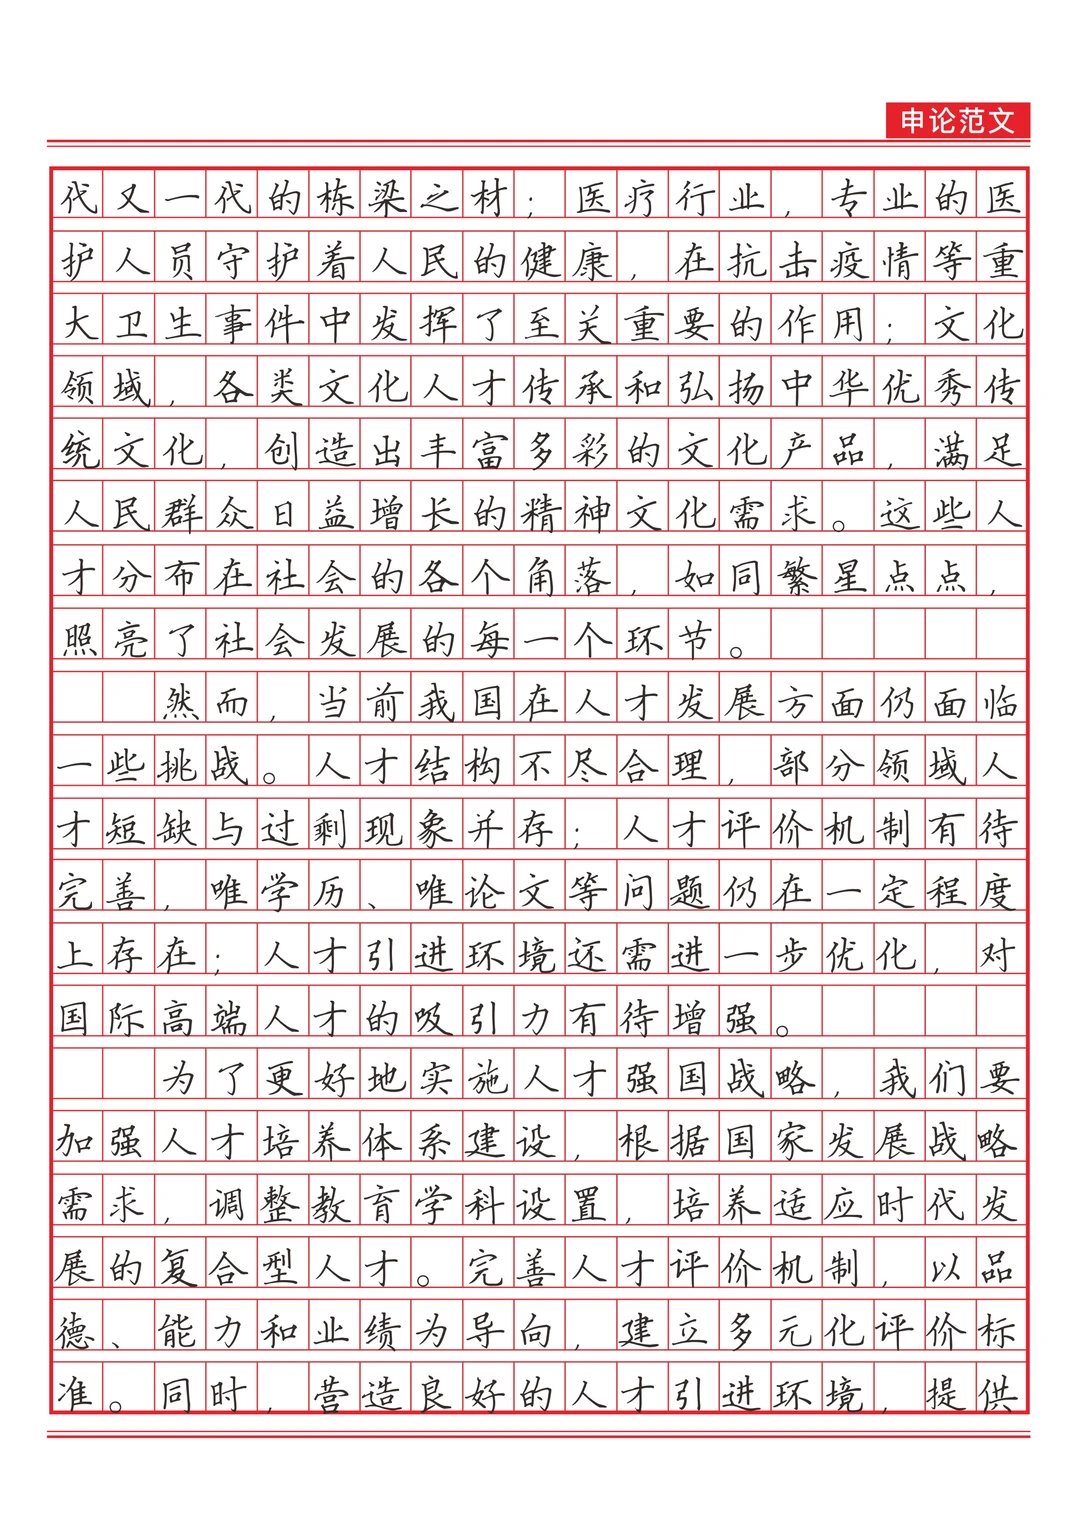 申论范文
代又一代的栋梁之材；医疗行业，专业的医
护人员守护着人民的健康，在抗击疫情等重
大卫生事件中发挥了至关重要的作用；文化
领域，各类文化人才传承和弘扬中华优秀传
统文化，创造出丰富多彩的文化产品，满足
人民群众日益增长的精神文化需求。这些人
才分布在社会的各个角落，如同繁星点点，
照亮了社会发展的每一个环节。
然而，当前我国在人才发展方面仍面临
一些挑战。人才结构不尽合理，部分领域人
才短缺与过剩现象并存；人才评价机制有待
完善，唯学历、唯论文等问题仍在一定程度
上存在；人才引进环境还需进一步优化，对
国际高端人才的吸引力有待增强。
为了更好地实施人才强国战略，我们要
加强人才培养体系建设，根据国家发展战略
需求，调整教育学科设置，培养适应时代发
展的复合型人才。完善人才评价机制，以品
德、能力和业绩为导向，建立多元化评价标
准。同时，营造良好的人才引进环境，提供